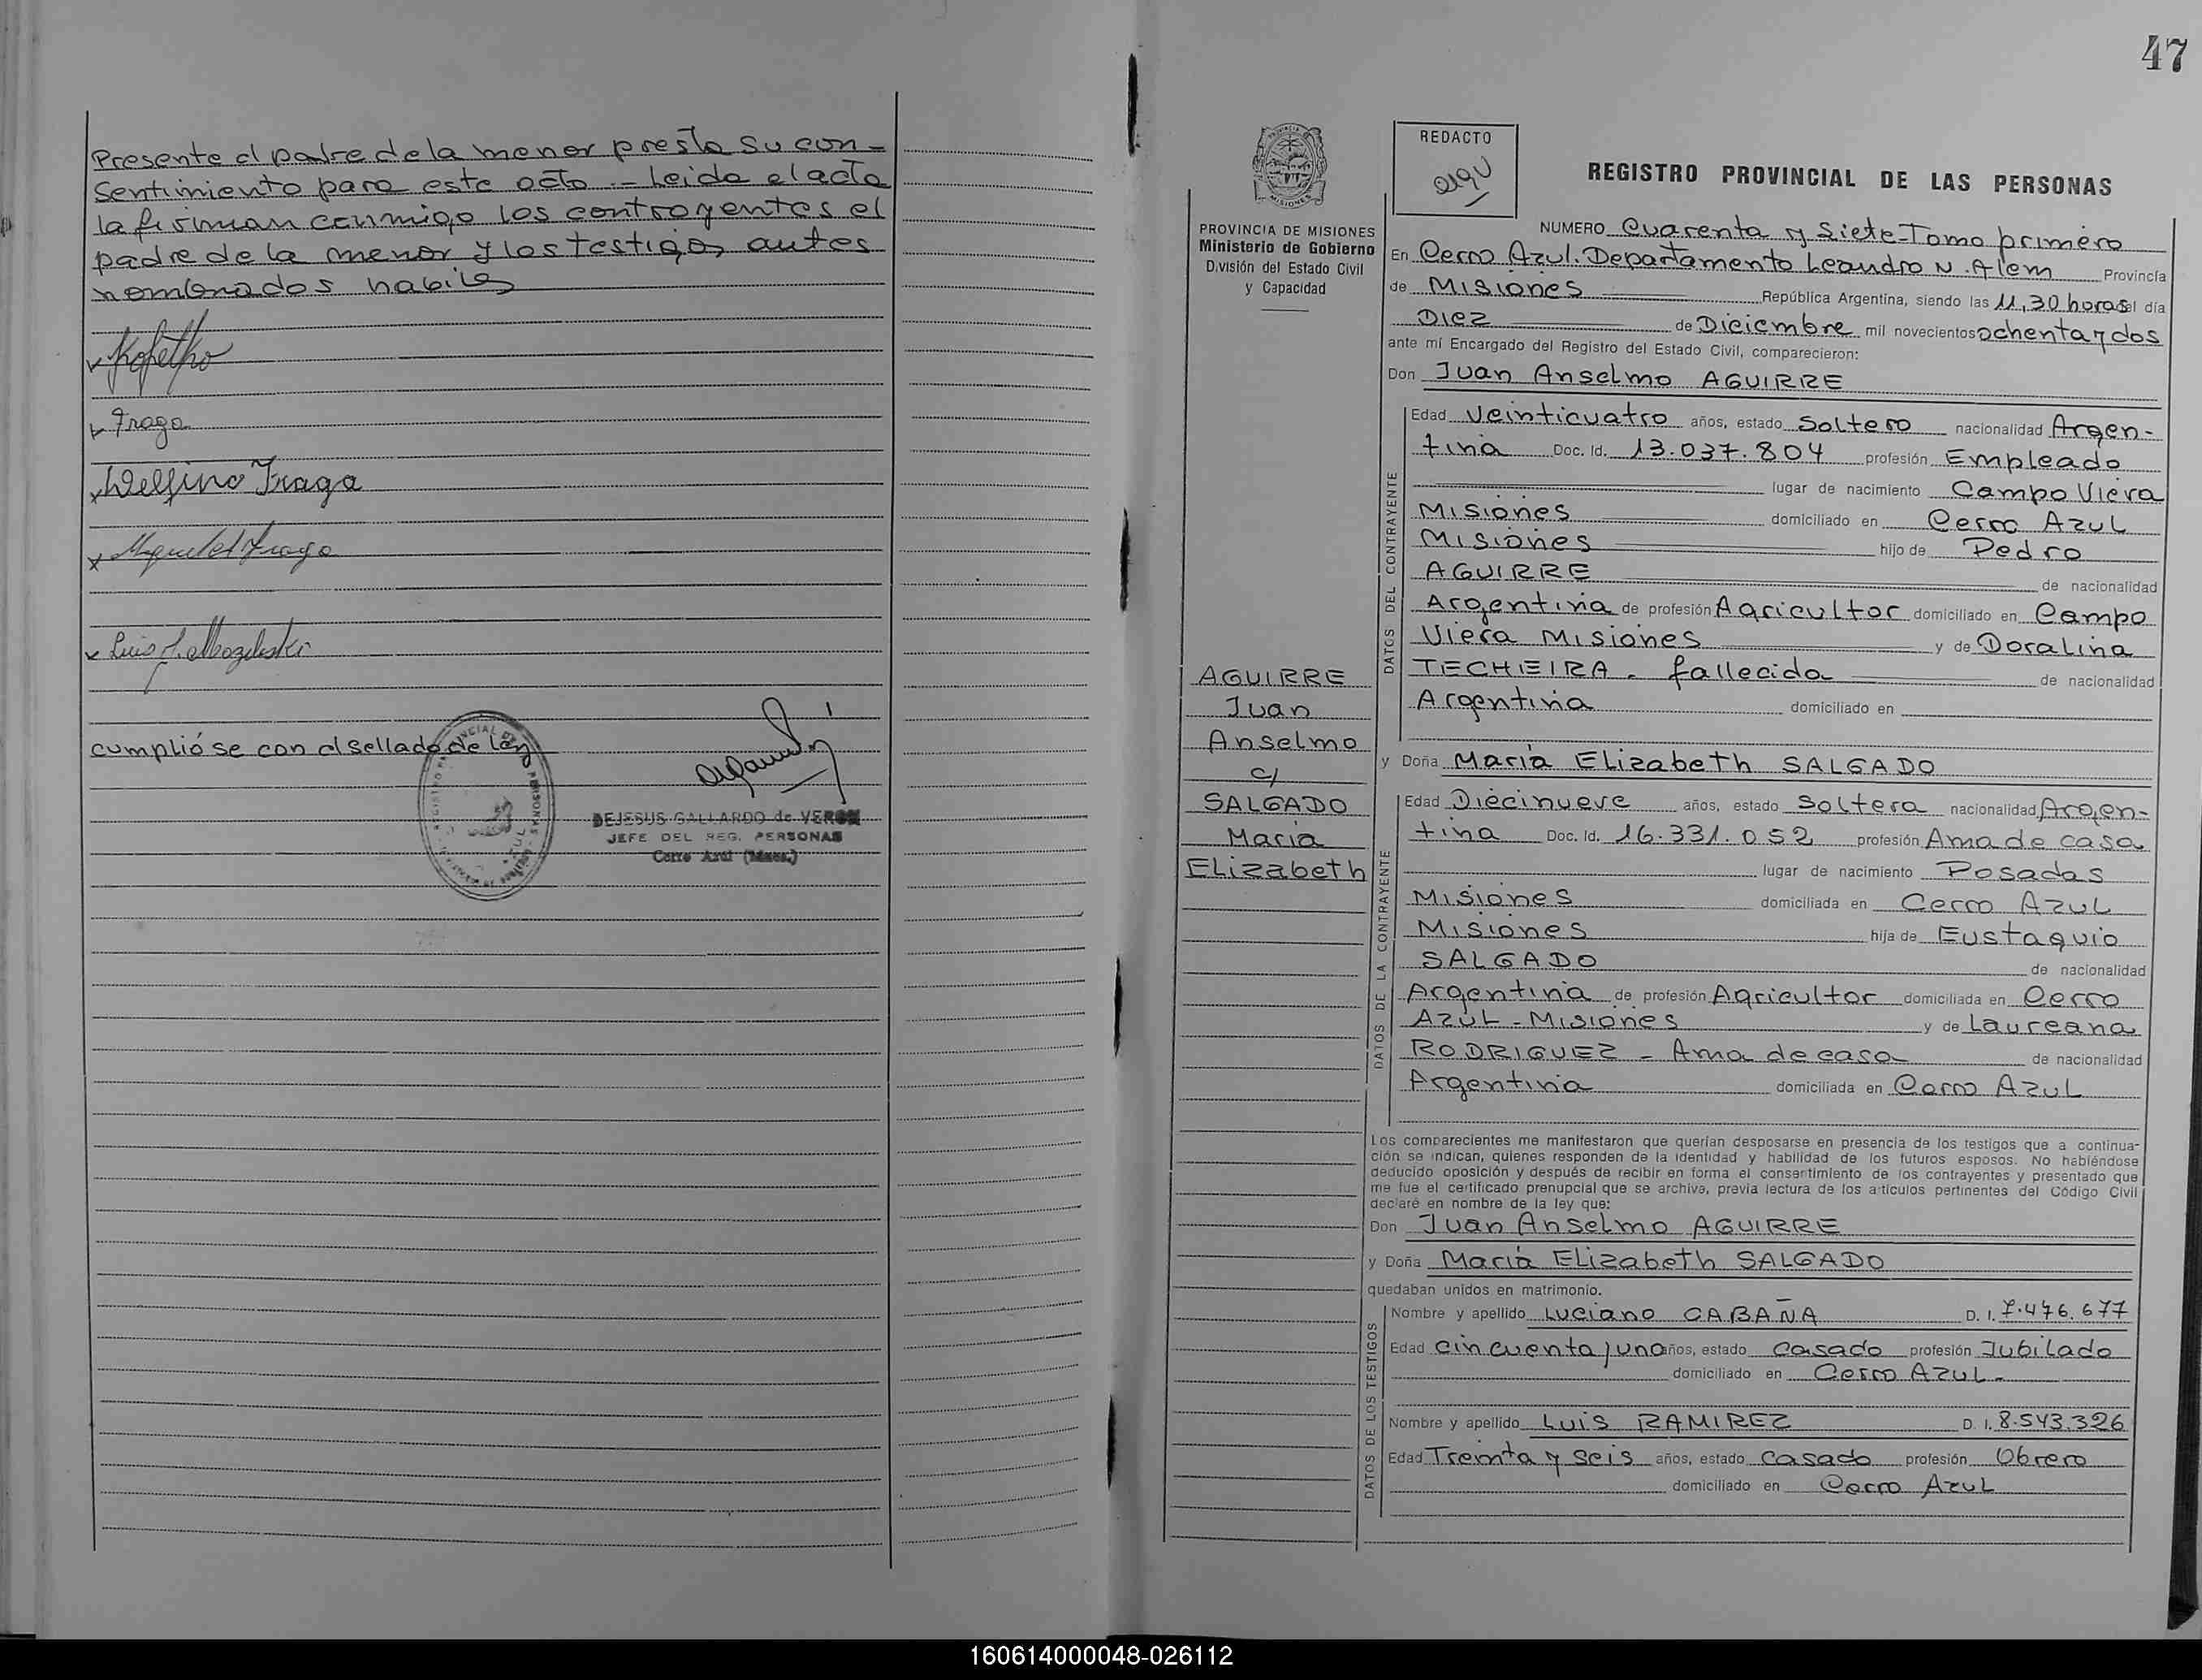 Presente el padre de la menor presta su con-
sentimiento para este acto.- Leida el acta
la firman conmigo los contrayentes el
padre de la menor y los testigos antes
nombrados habiles
Kofetko
Fraga
Delfino Fraga
Miguel A Fraga
cumplióse con el sellado de ley
DEJESUS GALLARDO de VERON
JEFE DEL REG. PERSONAS
Cerro Azul (Mnes.)
47
PROVINCIA DE MISIONES
Ministerio de Gobierno
División del Estado Civil
y Capacidad
AGUIRRE
Juan
Anselmo
c/
SALGADO
Maria
Elizabeth
REDACTO
REGISTRO PROVINCIAL DE LAS PERSONAS
NUMERO Cuarenta y siete-Tomo primero
En Cerro Azul. Departamento Leandro N. Alem Provincia
de Misiones República Argentina, siendo las 11,30 horas del día
Diez de Diciembre mil novecientos ochenta y dos
ante mí Encargado del Registro del Estado Civil, comparecieron:
Don Juan Anselmo AGUIRRE
DATOS DEL CONTRAYENTE
Edad Veinticuatro años, estado Soltero nacionalidad Argen-
tina Doc. Id. 13.037.804 profesión Empleado
lugar de nacimiento Campo Viera
Misiones domiciliado en Cerro Azul
Misiones hijo de Pedro
AGUIRRE de nacionalidad
Argentina de profesión Agricultor domiciliado en Campo
Viera Misiones y de Doralina
TECHEIRA - fallecida de nacionalidad
Argentina domiciliado en
y Doña María Elizabeth SALGADO
DATOS DE LA CONTRAYENTE
Edad Diecinueve años, estado Soltera nacionalidad Argen-
tina Doc. Id. 16.331.052 profesión Ama de casa
lugar de nacimiento Posadas
Misiones domiciliada en Cerro Azul
Misiones hija de Eustaquio
SALGADO de nacionalidad
Argentina de profesión Agricultor domiciliada en Cerro
Azul - Misiones y de Laureana
RODRIGUEZ - Ama de casa de nacionalidad
Argentina domiciliada en Cerro Azul
Los comparecientes me manifestaron que querían desposarse en presencia de los testigos que a continua-
ción se indican, quienes responden de la identidad y habilidad de los futuros esposos. No habiéndose
deducido oposición y después de recibir en forma el consertimiento de los contrayentes y presentado que
me fue el certificado prenupcial que se archiva, previa lectura de los artículos pertinentes del Código Civil
declaré en nombre de la ley que:
Don Juan Anselmo AGUIRRE
y Doña María Elizabeth SALGADO
quedaban unidos en matrimonio.
DATOS DE LOS TESTIGOS
Nombre y apellido Luciano CABAÑA D. I. 7.476.677
Edad cincuenta y un años, estado casado profesión Jubilado
domiciliado en Cerro Azul-
Nombre y apellido Luis RAMIREZ D. I. 8.543.326
Edad Treinta y seis años, estado casado profesión Obrero
domiciliado en Cerro Azul
160614000048-026112